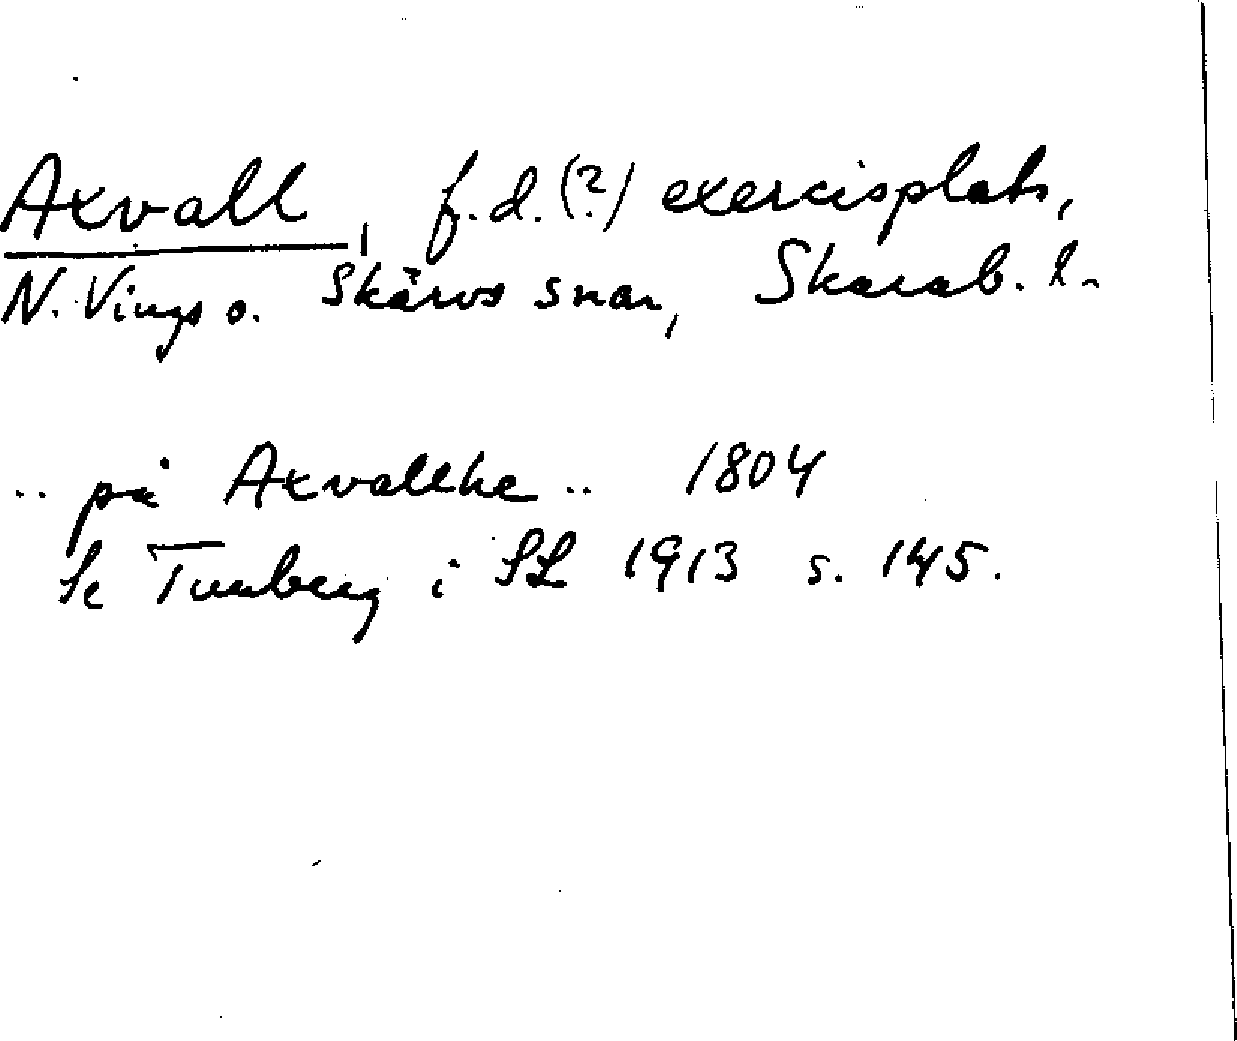 Axvall, f.d. (?) exercisplats,
N. Vings o. Skärvs snar, Skarab. l.
.. på Axvallhe .. 1804
Se Tunberg i SL 1913 s. 145.